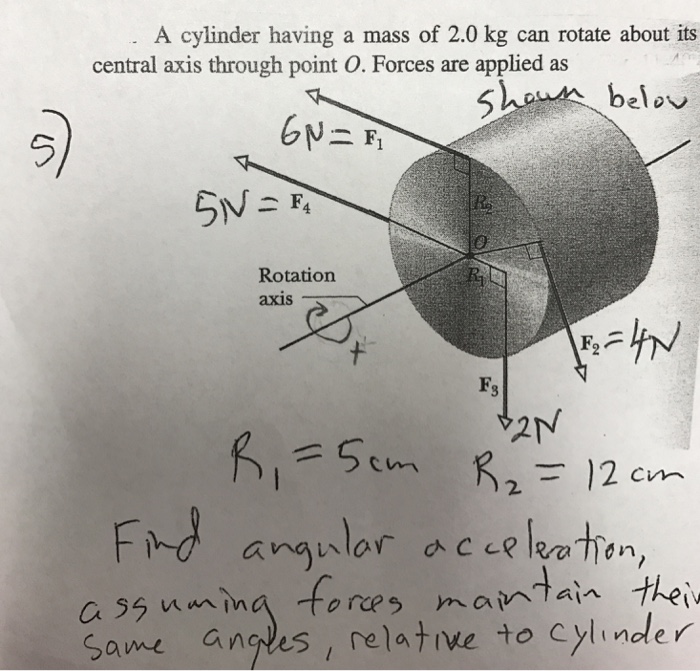 . A cylinder having a mass of 2.0 kg can rotate about its
central axis through point O. Forces are applied as
shown below
5)
6N = F₁
5N = F₄
R₂
O
R₁
Rotation
axis
+
F₂ = 4N
F₃
2N
R₁ = 5cm R₂ = 12 cm
Find angular acceleration,
assuming forces maintain their
same angles, relative to cylinder